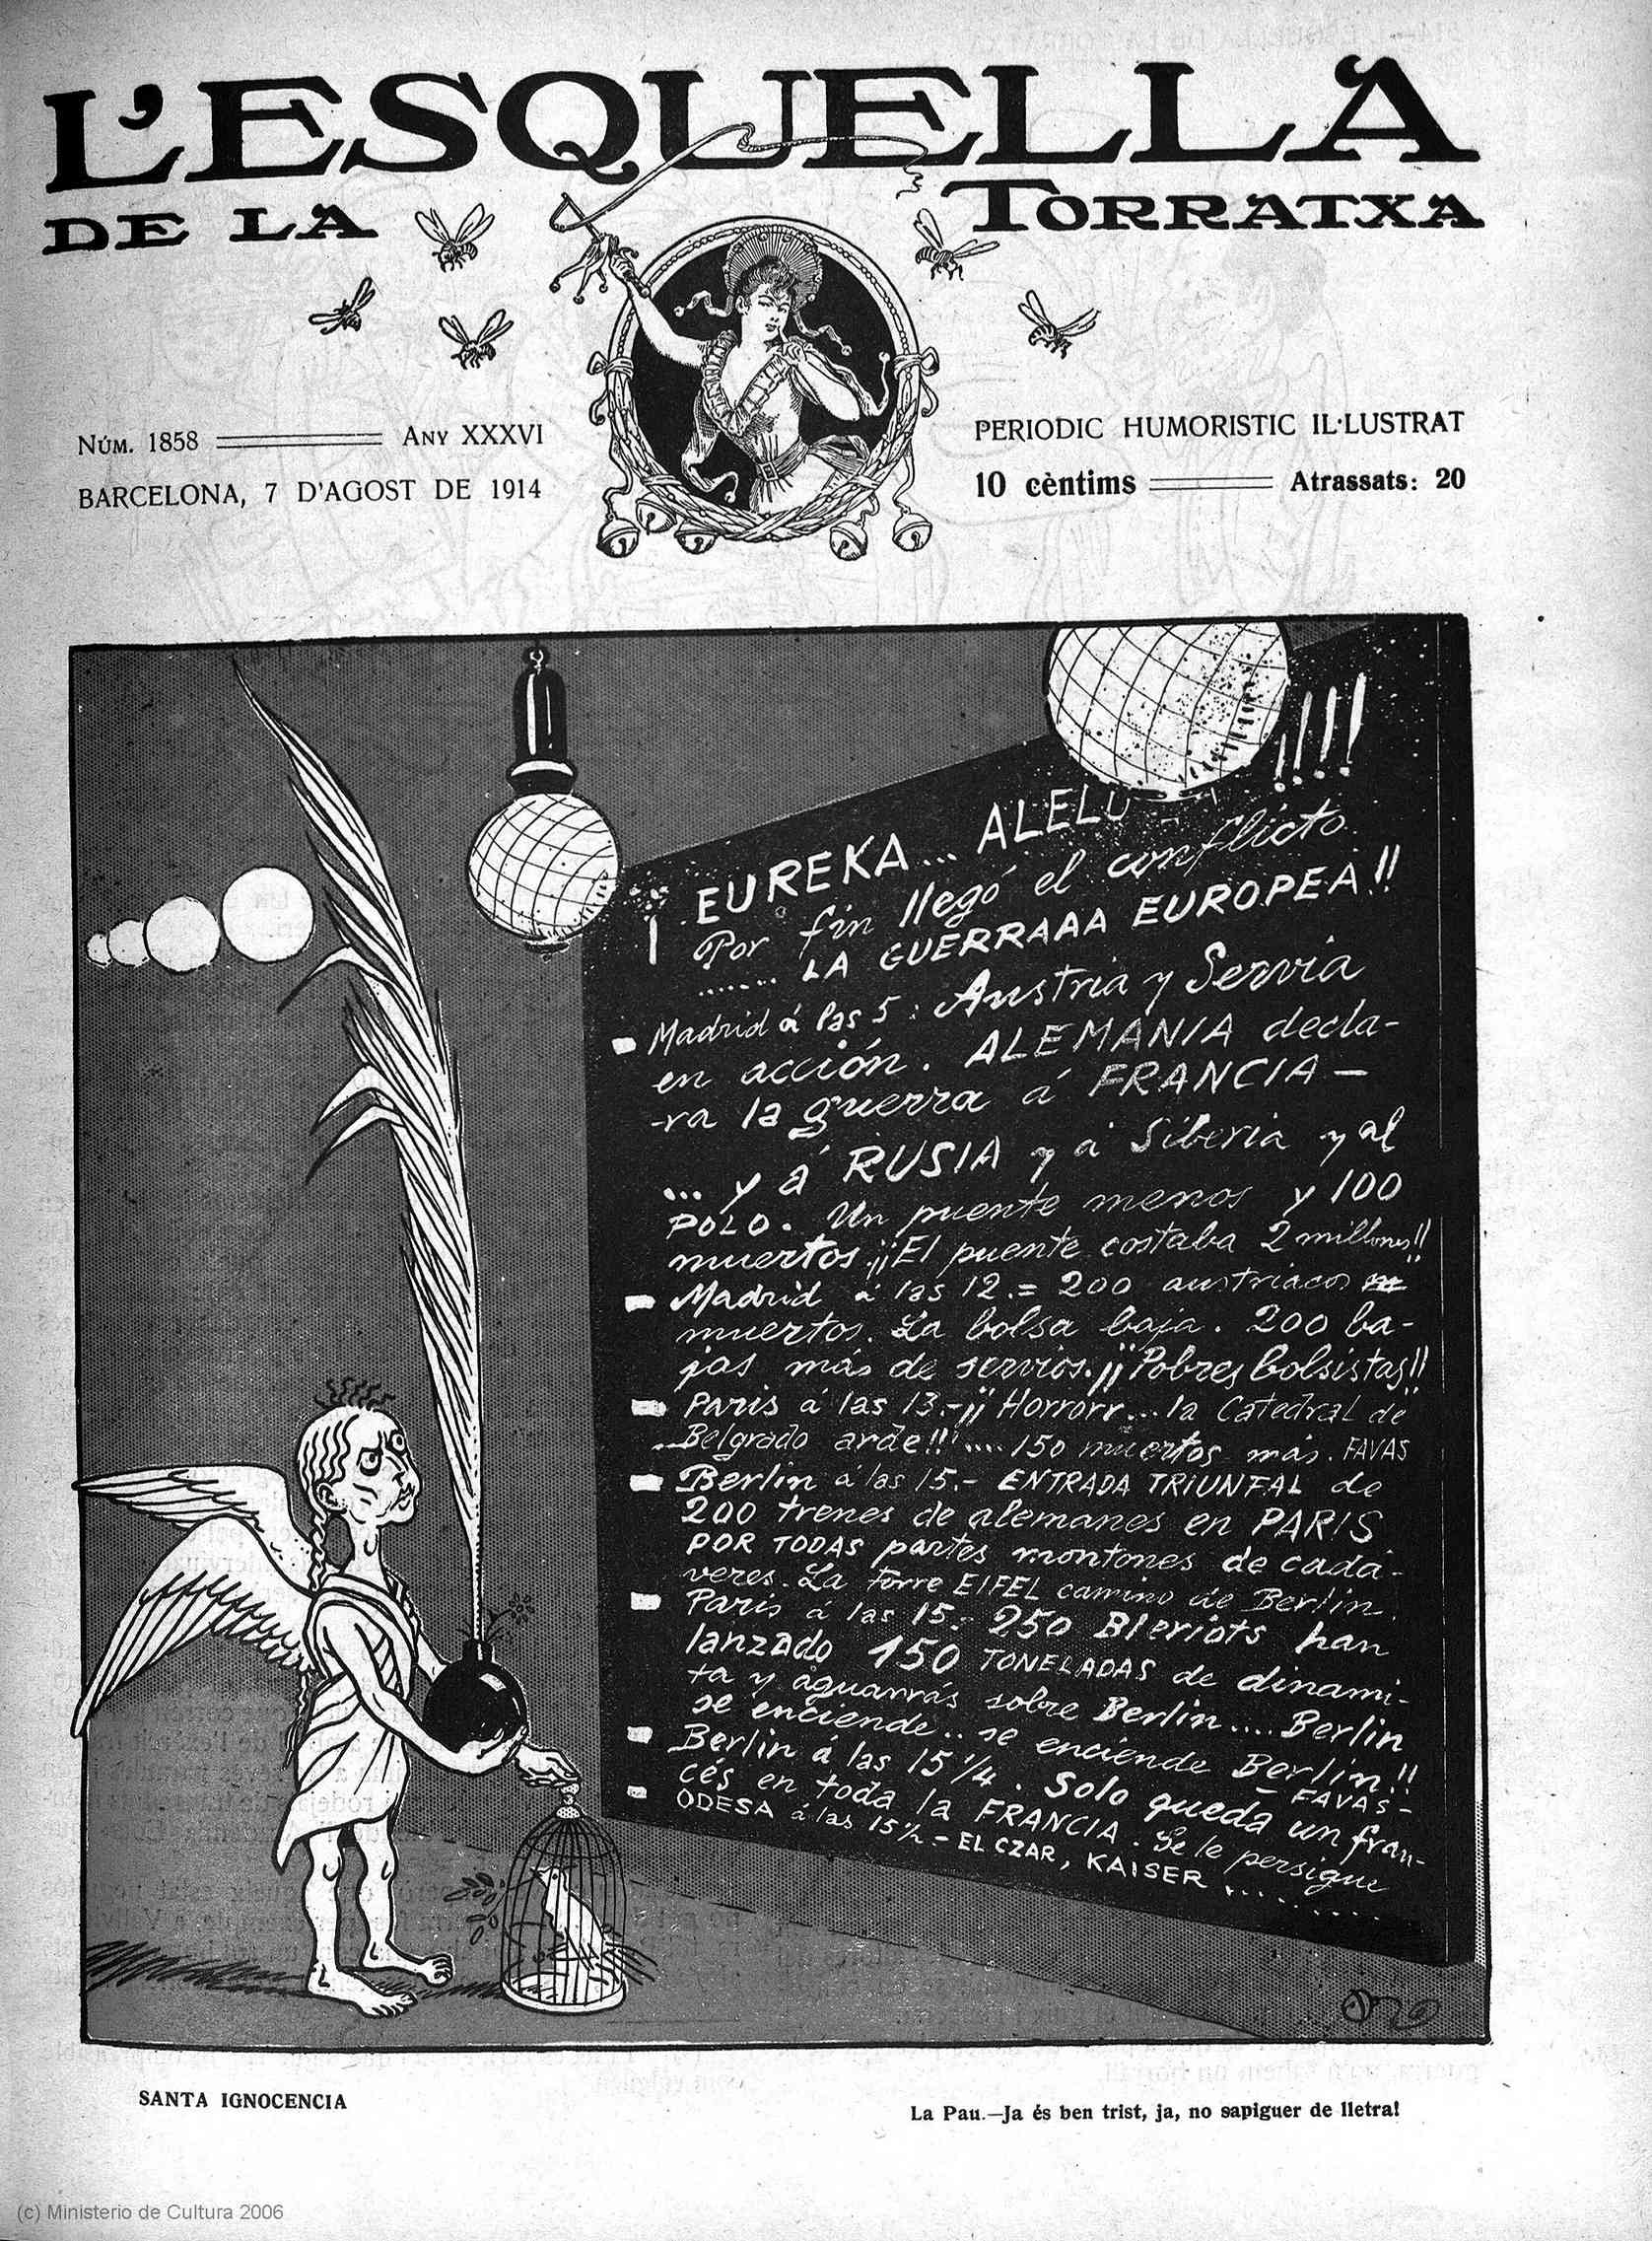 L'ESQUELLA
DE LA TORRATXA
NÚM. 1858 ANY XXXVI
BARCELONA, 7 D'AGOST DE 1914
PERIODIC HUMORISTIC IL·LUSTRAT
10 cèntims Atrassats: 20
¡ EUREKA... ALELU !!!!
Por fin llegó el conflicto
....... LA GUERRAAA EUROPEA!!
Madrid á las 5: Austria y Servia
en acción. ALEMANIA decla-
-ra la guerra á FRANCIA —
... y á RUSIA y á Siberia y al
POLO. Un puente menos y 100
muertos ¡¡El puente costaba 2 millones!!
Madrid á las 12.= 200 austriacos
muertos. La bolsa baja. 200 ba-
jas más de servios. ¡¡Pobres bolsistas!!
Paris á las 13.-¡¡Horrorr... la Catedral de
Belgrado arde!! .... 150 muertos más. FAVAS
Berlin á las 15.- ENTRADA TRIUNFAL de
200 trenes de alemanes en PARIS
POR TODAS partes montones de cadá-
veres. La Torre EIFEL camino de Berlin.
Paris á las 15.- 250 Bleriots han
lanzado 150 TONELADAS de dinami-
ta y aguarrás sobre Berlin.... Berlin
se enciende.. se enciende Berlin!!
FAVAS-
Berlin á las 15 1/4. Solo queda un fran-
cés en toda la FRANCIA. Se le persigue
ODESA á las 15 1/2 - EL CZAR, KAISER ....
SANTA IGNOCENCIA
La Pau.—Ja és ben trist, ja, no sapiguer de lletra!
(c) Ministerio de Cultura 2006